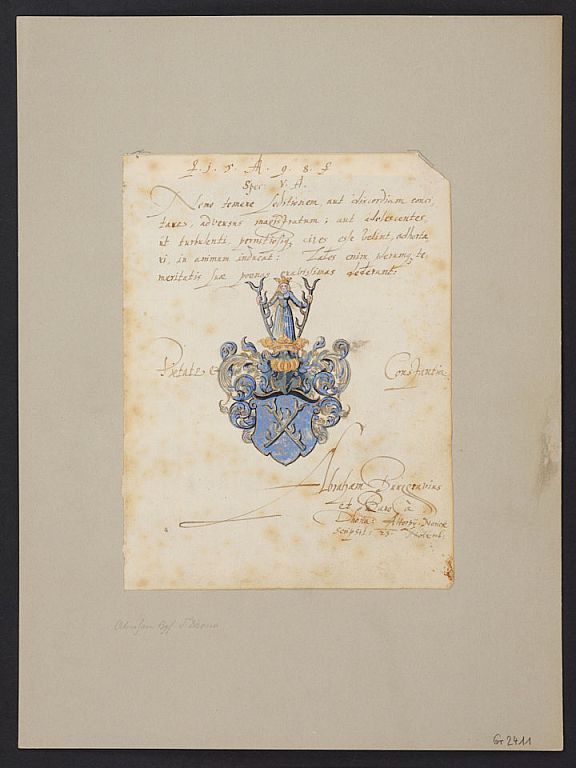 1 5 A 9 8
Sper. V. A.
Nemo temere seditionem aut discordiam conci,
tare, adversus magistratum; aut adolescentes,
ut turbulenti, pernitiosiq; cives esse velint, adhorta,
ri, in animum inducat: Tales enim plerumq; te,
meritatis suæ poenas gravissimas dederunt.
Pietate et Constantia.
Abraham Burggravius
et Baro à
Dhona: Altorfij Noricæ
scripsit: 25
Gr 2411